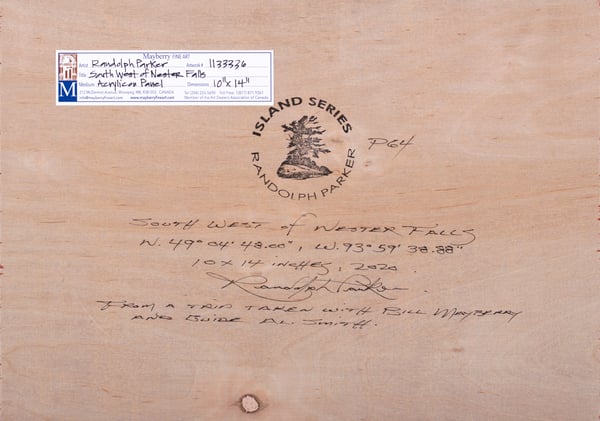 Mayberry FINE ART
Artist Randolph Parker Artwork # 1133336
Title South West of Nester Falls
Medium Acrylic on Panel Dimensions 10" x 14"
212 McDermot Avenue, Winnipeg, MB, R3B 0S3 CANADA
info@mayberryfineart.com www.mayberryfineart.com Member of the Art Dealers Association of Canada
M
ISLAND SERIES
RANDOLPH PARKER
P64
SOUTH WEST of NESTER FALLS
N. 49° 04' 48.00", W. 93° 59' 38.88"
10 x 14 inches, 2020.
Randolph Parker.
FROM A TRIP TAKEN WITH BILL MAYBERRY
AND GUIDE AL. SMITH.